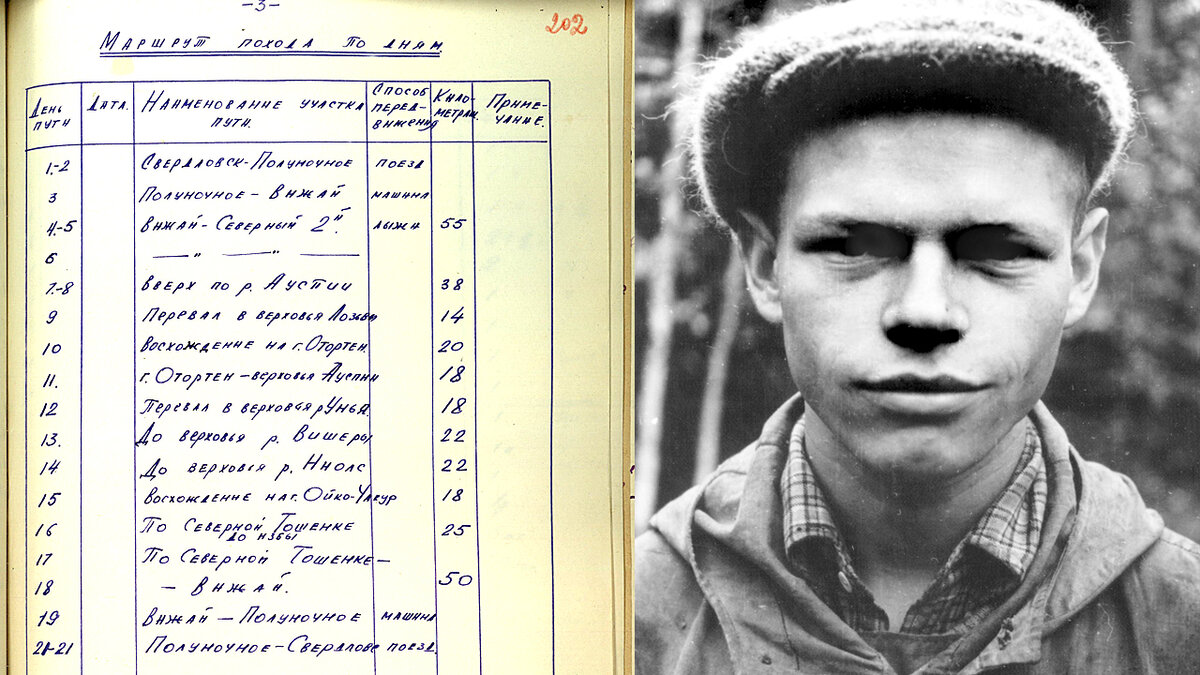 -3-
202
Маршрут похода по дням
День пути Дата. Наименование участка пути. Способ передвижения Километраж. Примечание.
1-2 Свердловск-Полуночное поезд
3 Полуночное - Вижай машина
4-5 Вижай-Северный 2й. лыжи 55
6 —— " —— " ——
7-8 Вверх по р. Ауспии 38
9 Перевал в верховья Лозьвы 14
10 Восхождение на г. Отортен 20
11. г. Отортен-верховья Ауспии 18
12 Перевал в верховья р Унья 18
13. До верховья р. Вишеры 22
14 До верховья р. Ниолс 22
15 Восхождение на г. Ойко-Чакур 18
16 По Северной Тошенке до избы 25
17 По Северной Тошенке -
18 - Вижай. 50
19 Вижай - Полуночное машина
20-21 Полуночное-Свердловс поезд.